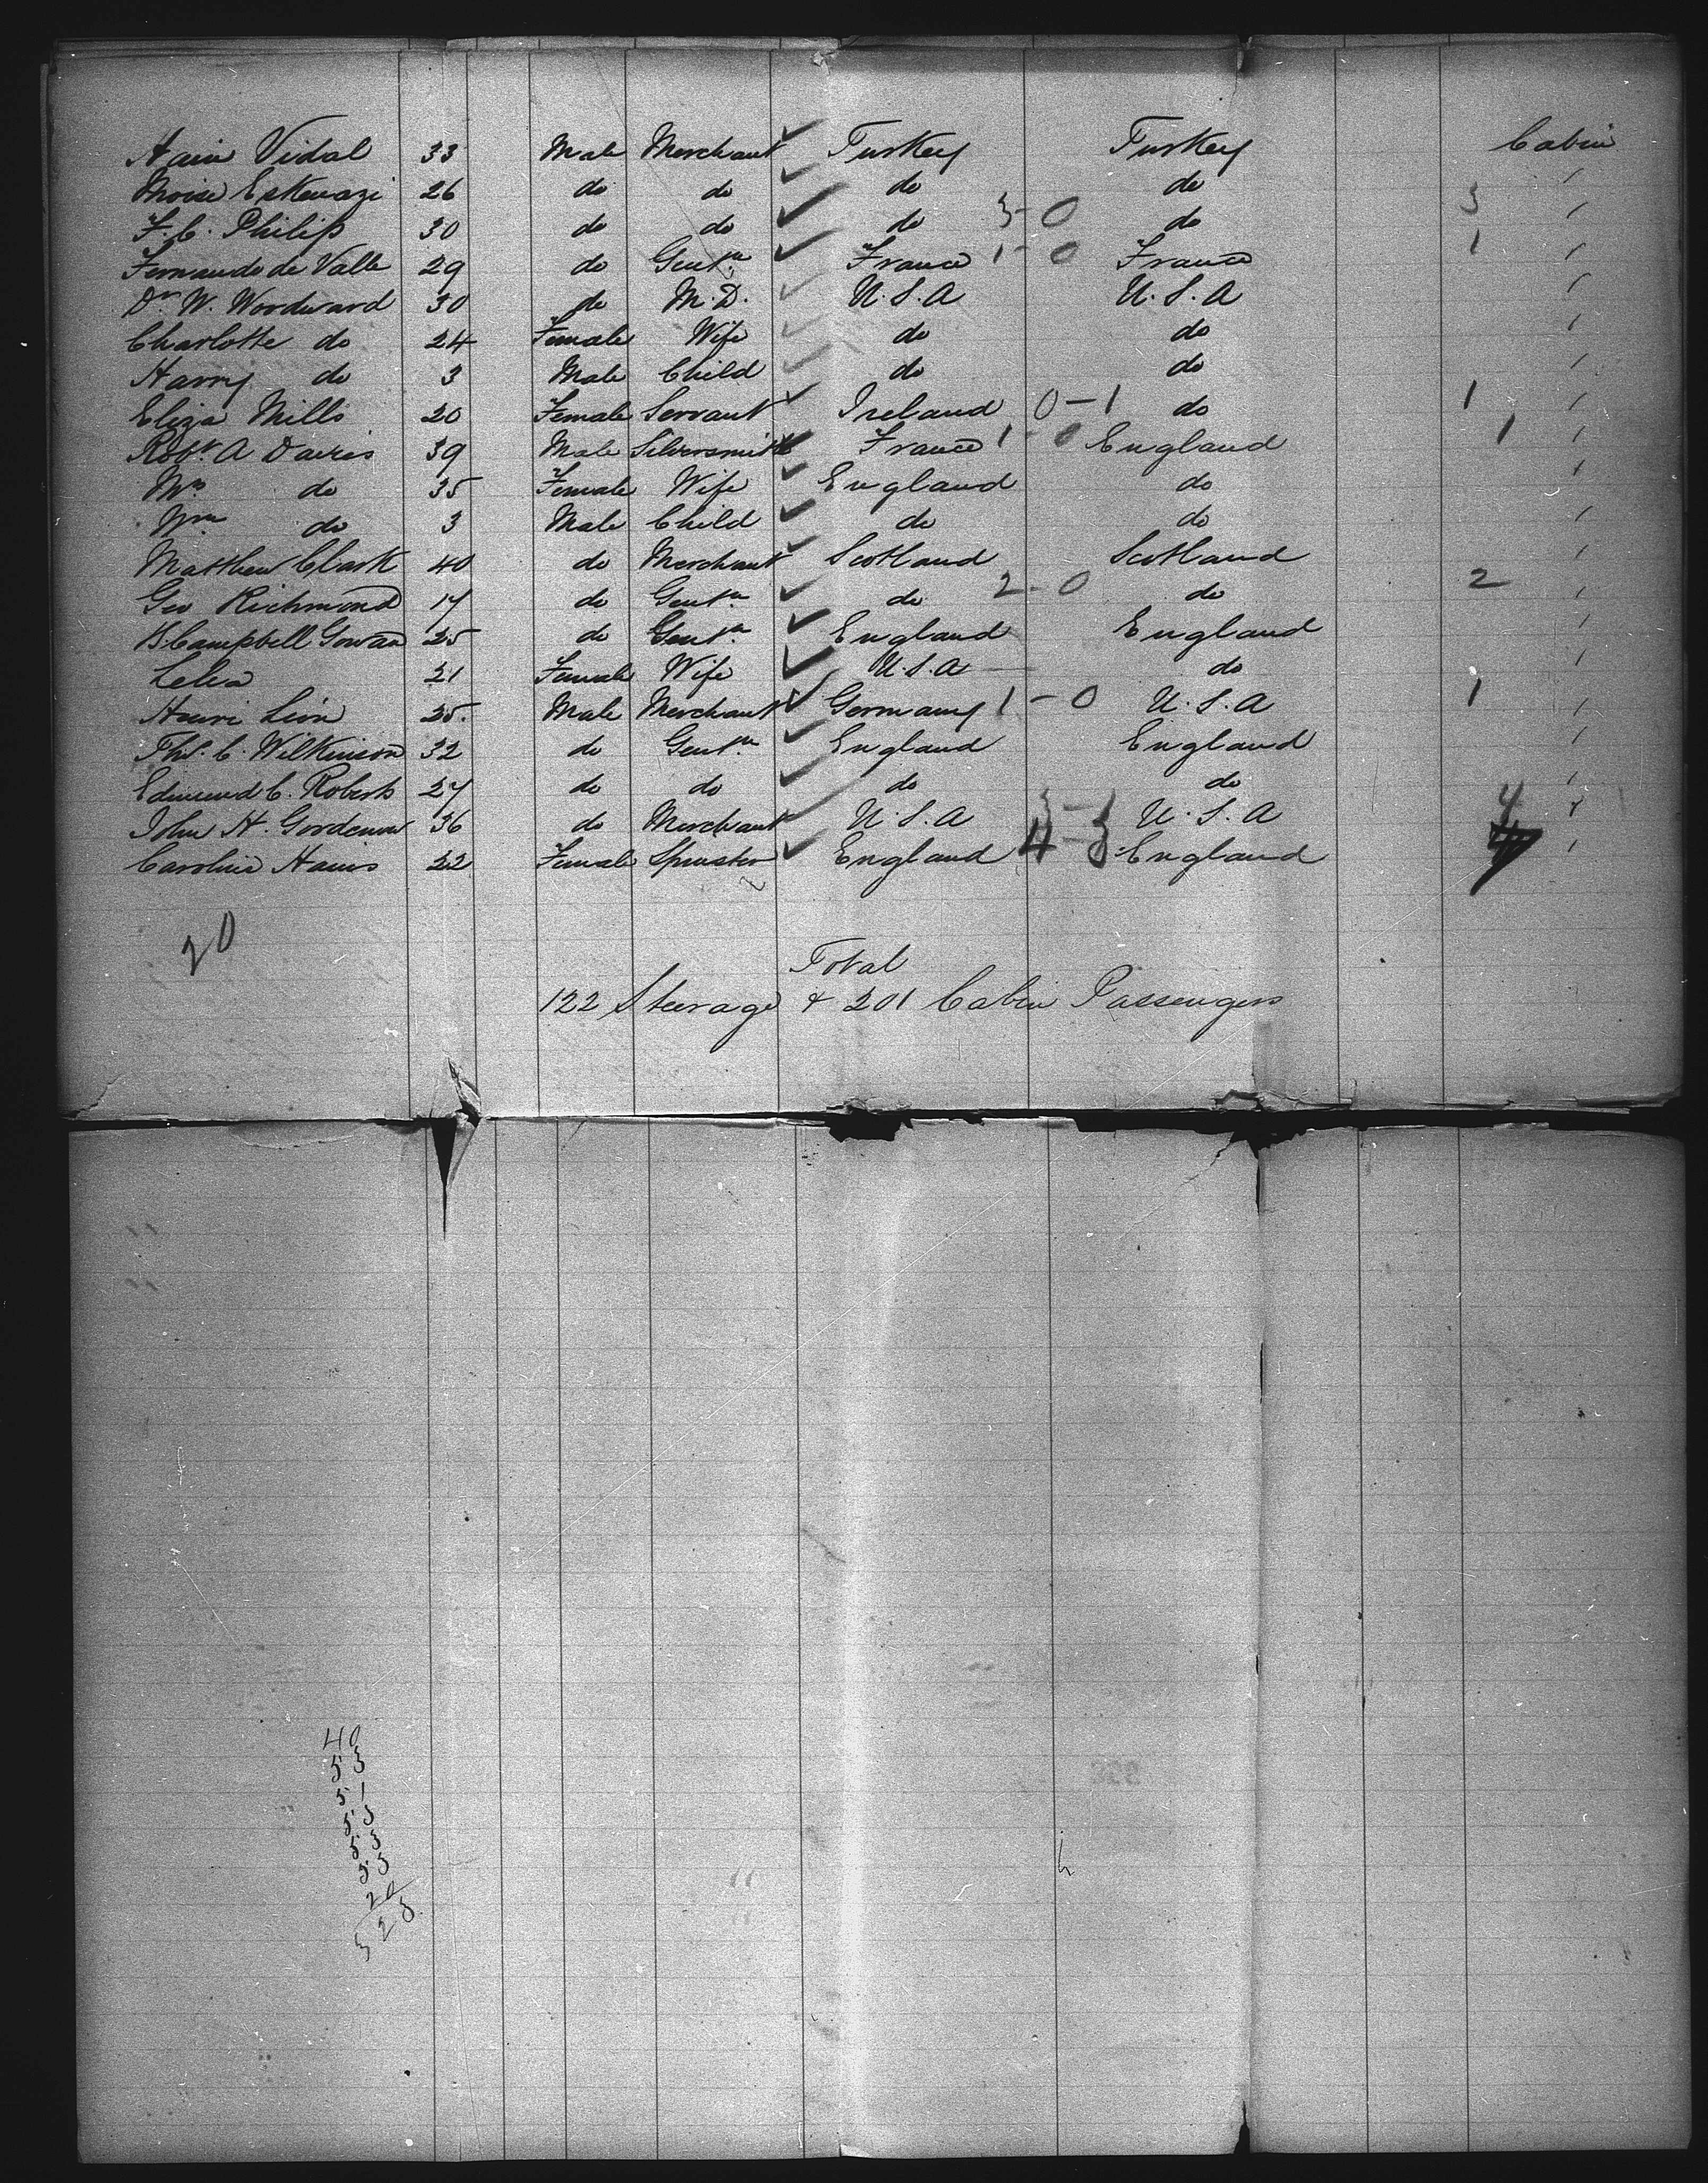 Haim Vidal 33 Male Merchant Turkey Turkey Cabin
Moise Eskenazi 26 do do do do "
F. C. Philip 30 do do do 3-0 do 3 "
Fernando de Valle 29 do Gentn France 1-0 France 1 "
Dr W. Woodward 30 do M.D. U.S.A U.S.A "
Charlotte do 24 Female Wife do do "
Harry do 3 Male Child do do "
Eliza Mills 20 Female Servant Ireland 0-1 do 1 "
Robt A Davies 39 Male Silversmith France 1-0 England 1 "
Mrs do 35 Female Wife England do "
Wm do 3 Male Child do do "
Matthew Clark 40 do Merchant Scotland Scotland "
Geo Richmond 17 do Gentn do 2-0 do 2 "
B Campbell Gowan 25 do Gentn England England "
Lelia 21 Female Wife U.S.A do "
Henri Leon 25 Male Merchant Germany 1-0 U.S.A 1 "
Thos. C. Wilkinson 32 do Gentn England England "
Edmund C. Roberts 27 do do do do "
John H. 36 do Merchant U.S.A U.S.A 4 "
Caroline 22 Female Spinster England 4-3 England "
20
Total
122 Steerage & 201 Cabin Passengers
40